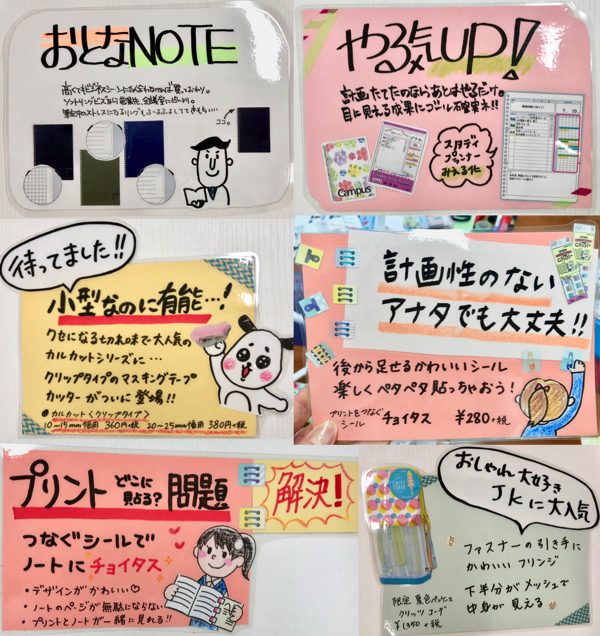 おとなNOTE
ソフトリングだから
ココ。
やる気UP!
計画たてたのならあとはやるだけ。
目に見える成果にゴール確実ネ!!
Campus
スタディ
プランナー
みえる化
待ってました!!
小型なのに有能…!
クセになる切れ味で大人気の
カルカットシリーズに…
クリップタイプのマスキングテープ
カッターがついに登場!!
●カルカット〈クリップタイプ〉
10~15mm幅用 360円+税 20~25mm幅用 380円+税
計画性のない
アナタでも大丈夫!!
後から足せるかわいいシール
楽しくペタペタ貼っちゃおう!
プリントをつなぐ
シール チョイタス ¥280+税
プリントどこに貼る?問題
解決!
つなぐシールで
ノートにチョイタス
・デザインがかわいい♡
・ノートのページが無駄にならない
・プリントとノートが一緒に見れる!!
おしゃれ大好き
JKに大人気
ファスナーの引き手に
かわいいフリンジ
下半分がメッシュで
中身が見える
限定 夏色パッケージ
¥1350+税